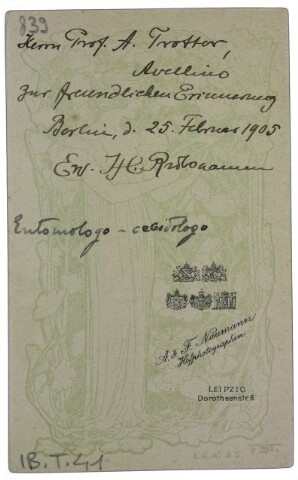 839
Herrn Prof. A. Trotter,
Avellino
zur freundlichen Erinnerung
Berlin, d. 25. Februar 1905
Ew. H. Rübsaamen
Entomologo - cecidologo
A. & F. Naumann
Hofphotographen
LEIPZIG
Dorotheenstr. 6
IB.T.41